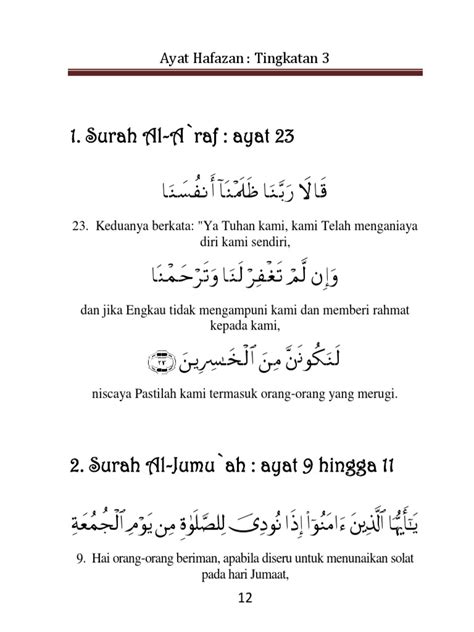 Ayat Hafazan : Tingkatan 3
1. Surah Al-A`raf : ayat 23
قَالَا رَبَّنَا ظَلَمْنَآ أَنفُسَنَا
23. Keduanya berkata: "Ya Tuhan kami, kami Telah menganiaya
diri kami sendiri,
وَإِن لَّمْ تَغْفِرْ لَنَا وَتَرْحَمْنَا
dan jika Engkau tidak mengampuni kami dan memberi rahmat
kepada kami,
لَنَكُونَنَّ مِنَ ٱلْخَـٰسِرِينَ ﴿٢٣﴾
niscaya Pastilah kami termasuk orang-orang yang merugi.
2. Surah Al-Jumu`ah : ayat 9 hingga 11
يَـٰٓأَيُّهَا ٱلَّذِينَ ءَامَنُوٓا۟ إِذَا نُودِىَ لِلصَّلَوٰةِ مِن يَوْمِ ٱلْجُمُعَةِ
9. Hai orang-orang beriman, apabila diseru untuk menunaikan solat
pada hari Jumaat,
12